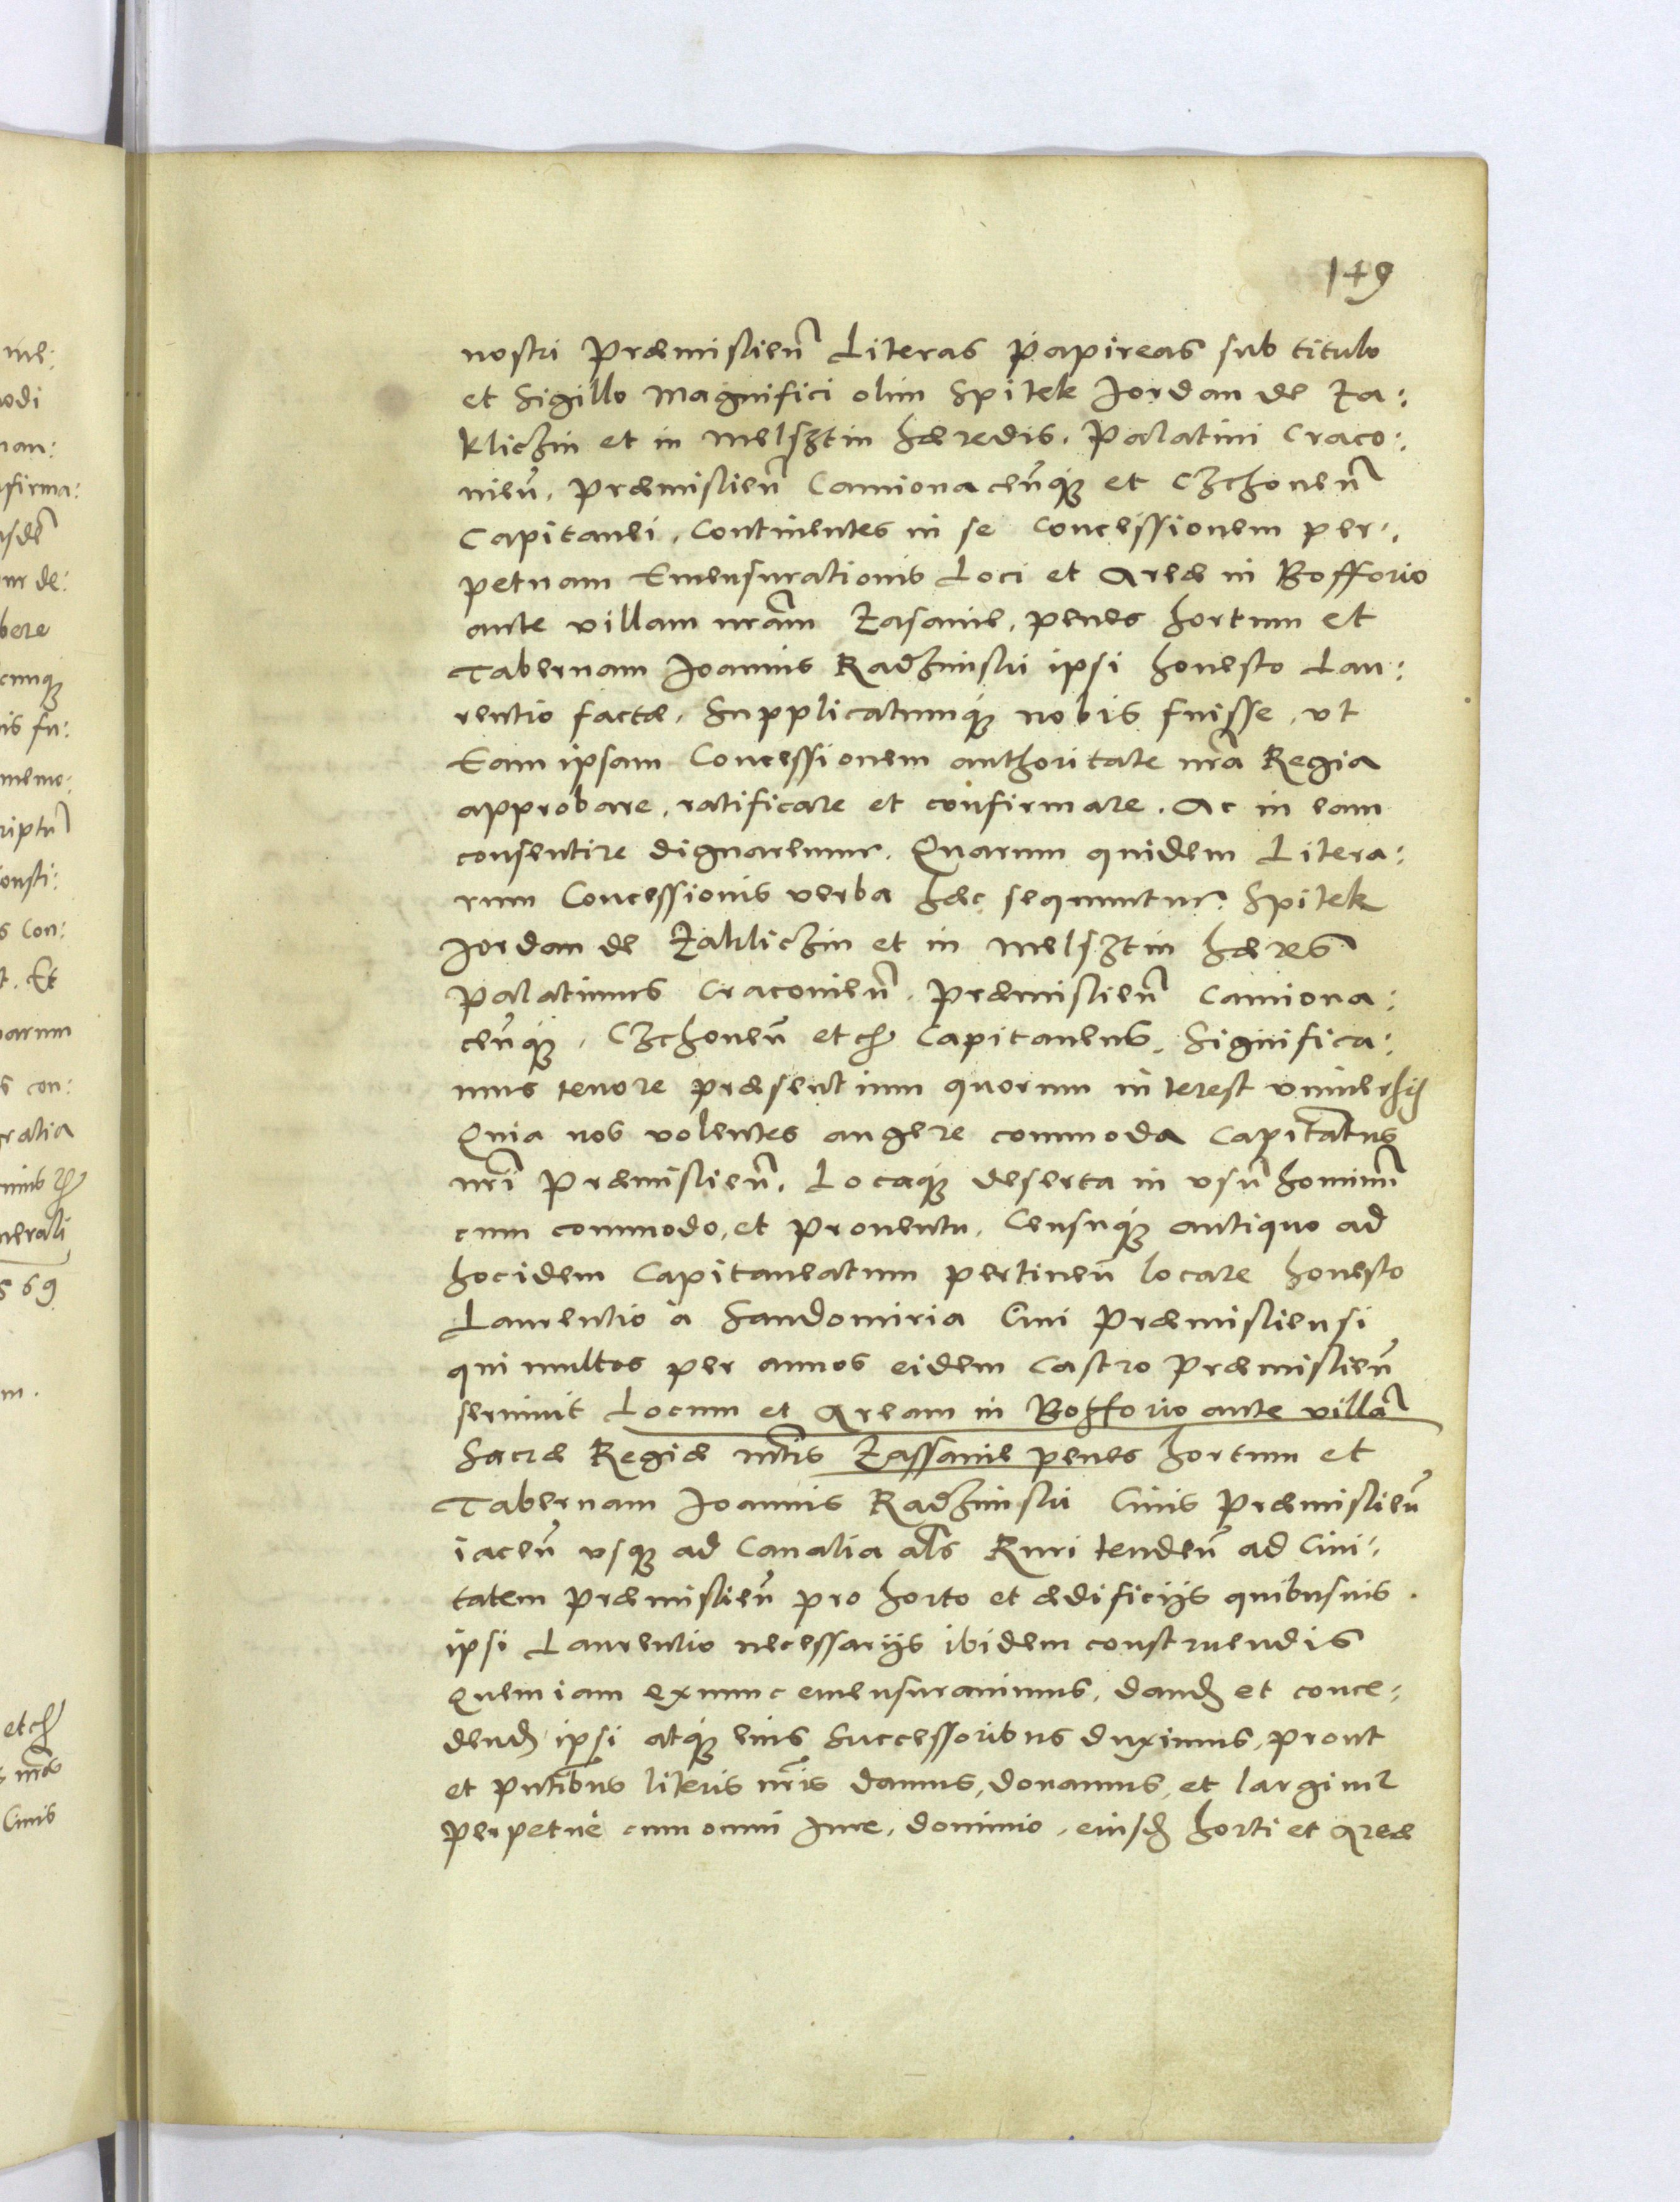 149
nostri Præmislien̄ Literas papireas sub titulo
et Sigillo Magnifici olim Spitek Jordan de Za:
kliczin et in Melsztin hæredis. Palatini Craco:
nien̄. Præmislien̄ Camionacen̄q́ꝫ et Czchonen̄
Capitanei. Continentes in se Concessionem per:
petuam Emensurationis Loci et Areæ in Bofforio
ante villam nr̃am Zasanie, penes hortum et
Tabernam Joannis Radzinski ipsi honesto Lau:
rentio factæ. Supplicatumq́ꝫ nobis fuisse, vt
Eam ipsam Concessionem authoritate nr̃a Regia
approbare, ratificare et confirmare. Ac in eam
consentire dignaremur. Quarum quidem Litera:
rum Concessionis verba hæc sequuntur. Spitek
Jordan de Zakliczin et in Melsztin hæres
Palatinus Cracouien̄. Præmislien̄ Camiona:
cen̄q́ꝫ, Czchonen̄ etc̃ Capitaneus. Significa:
mus tenore præsentium quorum interest vniuersis
Quia nos volentes augere commoda Capitãtus
nr̃i Præmislien̄. Locaq́ꝫ deserta in vsũ hominũ
cum commodo, et prouentu, Censuq́ꝫ antiquo ad
hocidem Capitaneatum pertinen̄ locare honesto
Laurentio à Sandomiria Ciui Præmisliensi
qui multos per annos eidem Castro Præmislien̄
seruiuit Locum et Aream in Bofforio ante villã
Sacræ Regiæ Mt̃is Zassanie penes hortum et
Tabernam Joannis Radzinski Ciuis Præmislien̄
iacen̄ vsqꝫ ad Canalia al̃s Ruri tenden̄ ad Ciui:
tatem Præmislien̄ pro horto et ædificijs quibusuis
ipsi Laurentio necessarijs ibidem construendis
Quem iam exnunc emensurauimus, dand̃ et conce:
dend̃ ipsi atq́ꝫ eius Successoribus duximus, prout
et pñtibus literis nr̃is damus, donamus, et largimr
perpetuè cum omni Jure, dominio, eiusd̃ horti et areæ